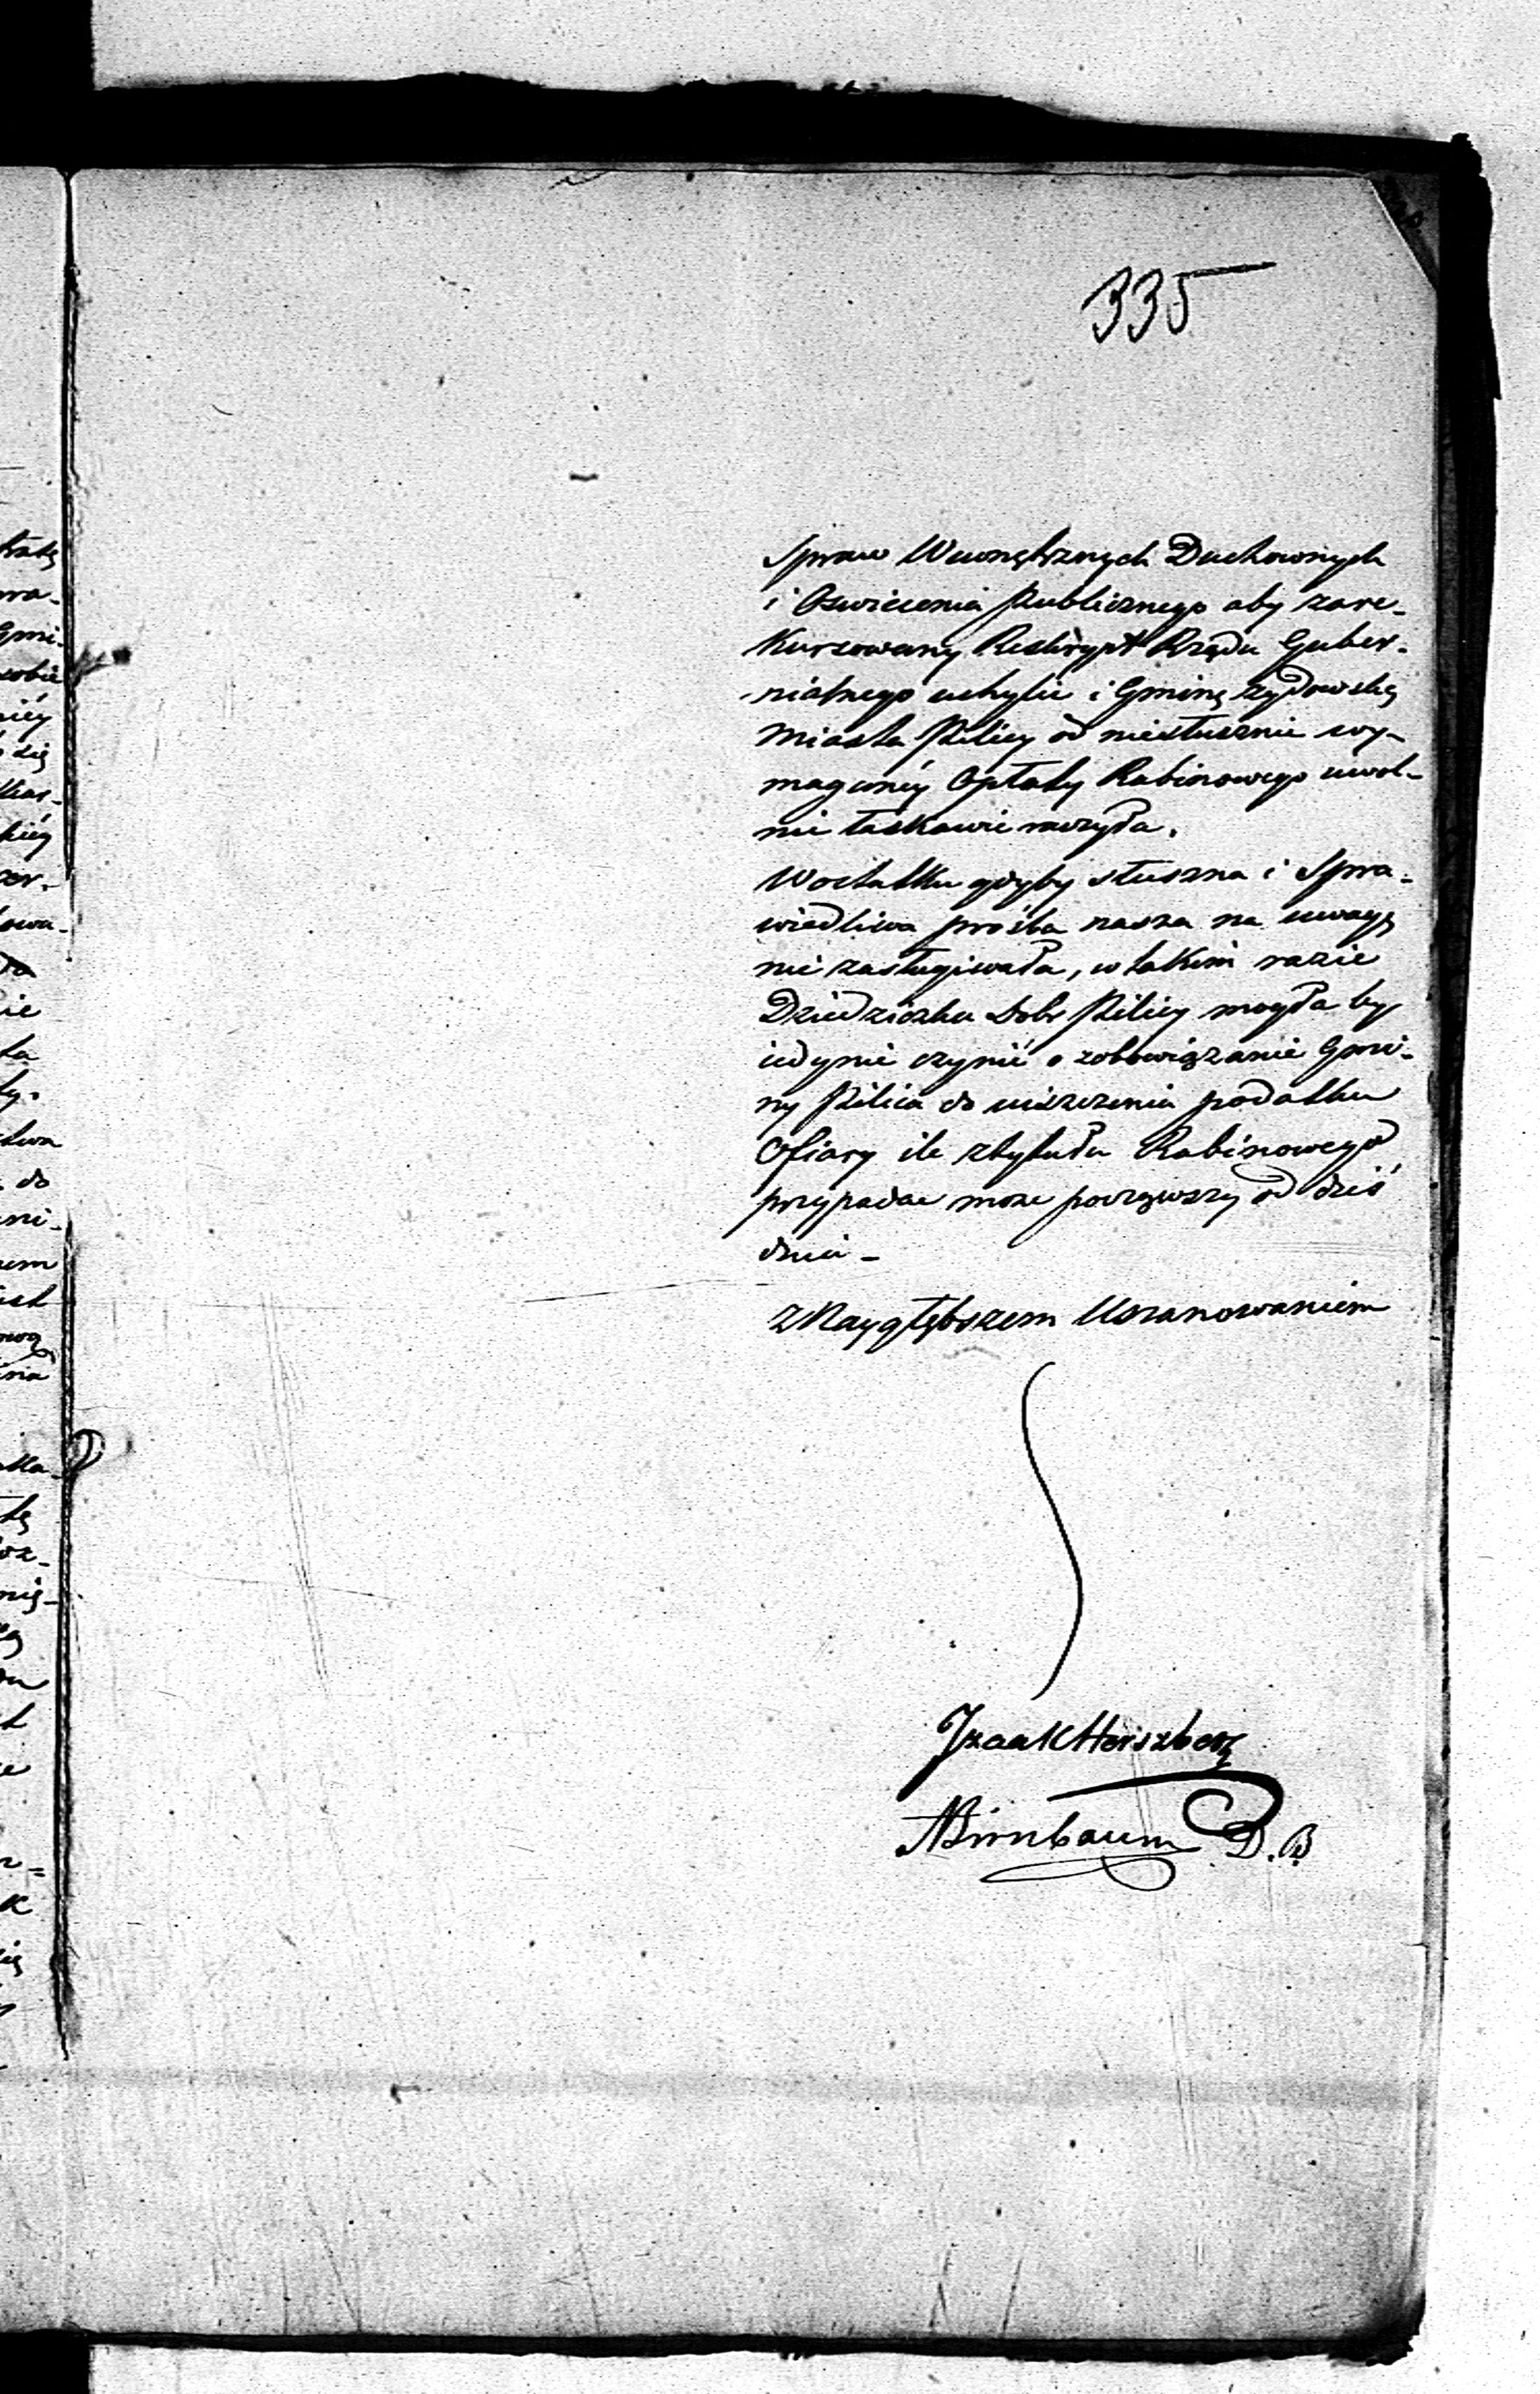 335
Spraw Wewnętrznych Duchownych
i Oswiecenia Publicznego aby zare-
kurzowany Reskrypt Rządu Guber-
nialnego uchylic i Gminę żydowską
Miasta Pilicy od niesłusznie wy-
maganéy Opłaty Rabinowego uwol-
nic łaskawie raczyła.
Wostatku gdyby słuszna i Spra-
wiedliwa prośba nasza na uwagę
nie zasługiwała, w takim razie
Dziedziczka Dobr Pilicy mogła by
iedynie czynić o zobowiązanie Gmi-
ny Pilica do uiszczenia podatku
Ofiary ile z tytułu Rabinowego
przypadac może począwszy od dziś
dnia -
Z Naygłębszem Uszanowaniem
Izaak Herszberg
ABirnbaum D. B.